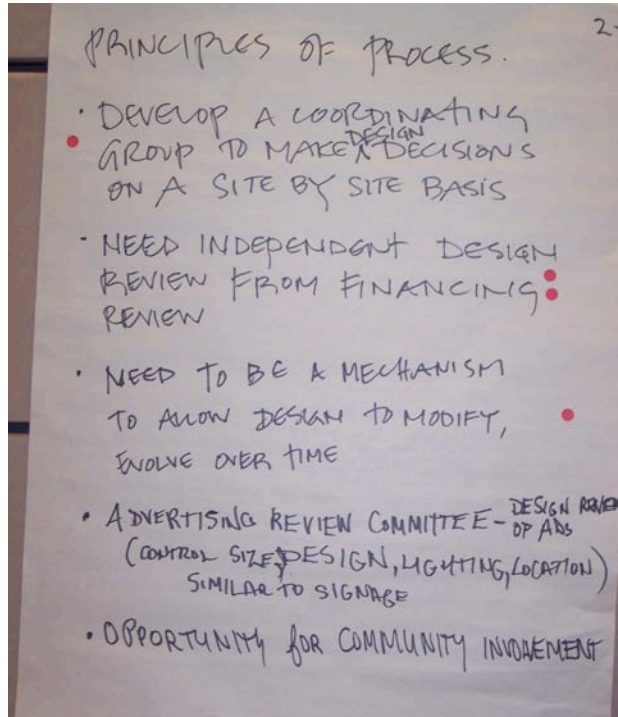 2-
PRINCIPLES OF PROCESS.
• DEVELOP A COORDINATING
GROUP TO MAKE ^DESIGN DECISIONS
ON A SITE BY SITE BASIS
• NEED INDEPENDENT DESIGN
REVIEW FROM FINANCING
REVIEW
• NEED TO BE A MECHANISM
TO ALLOW DESIGN TO MODIFY,
EVOLVE OVER TIME
• ADVERTISING REVIEW COMMITTEE - DESIGN REVIEW
OF ADS
(CONTROL SIZE, DESIGN, LIGHTING, LOCATION)
SIMILAR TO SIGNAGE
• OPPORTUNITY FOR COMMUNITY INVOLVEMENT